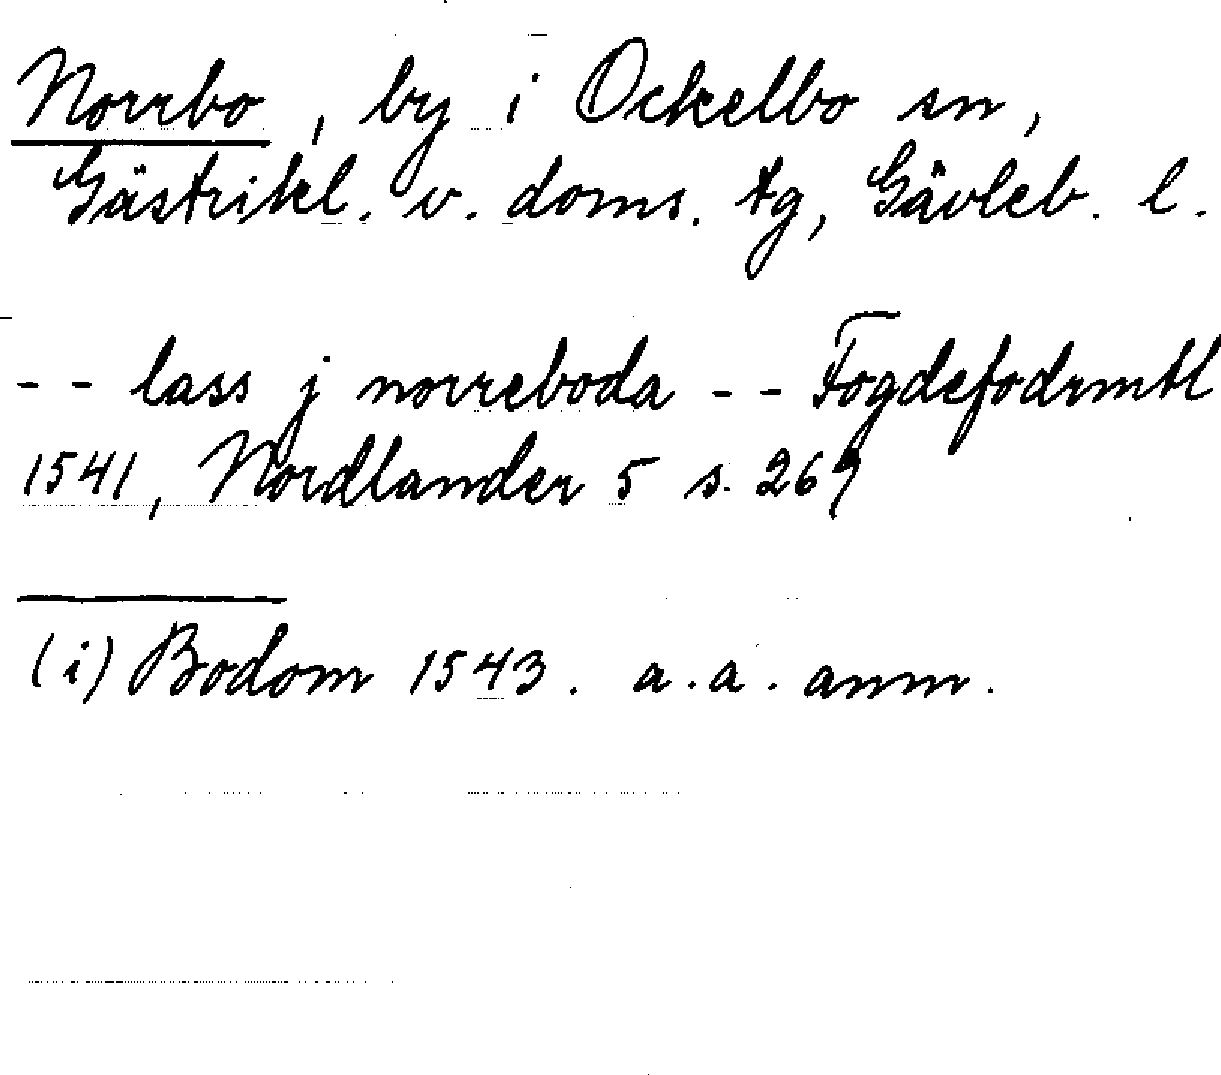 Norrbo, by i Ockelbo sn,
Gästrikl. v. doms. tg, Gävleb. l.
- - lass j norreboda - - Fogdefodrmtl
1541, Nordlander 5 s. 269
(i) Bodom 1543. a.a. anm.